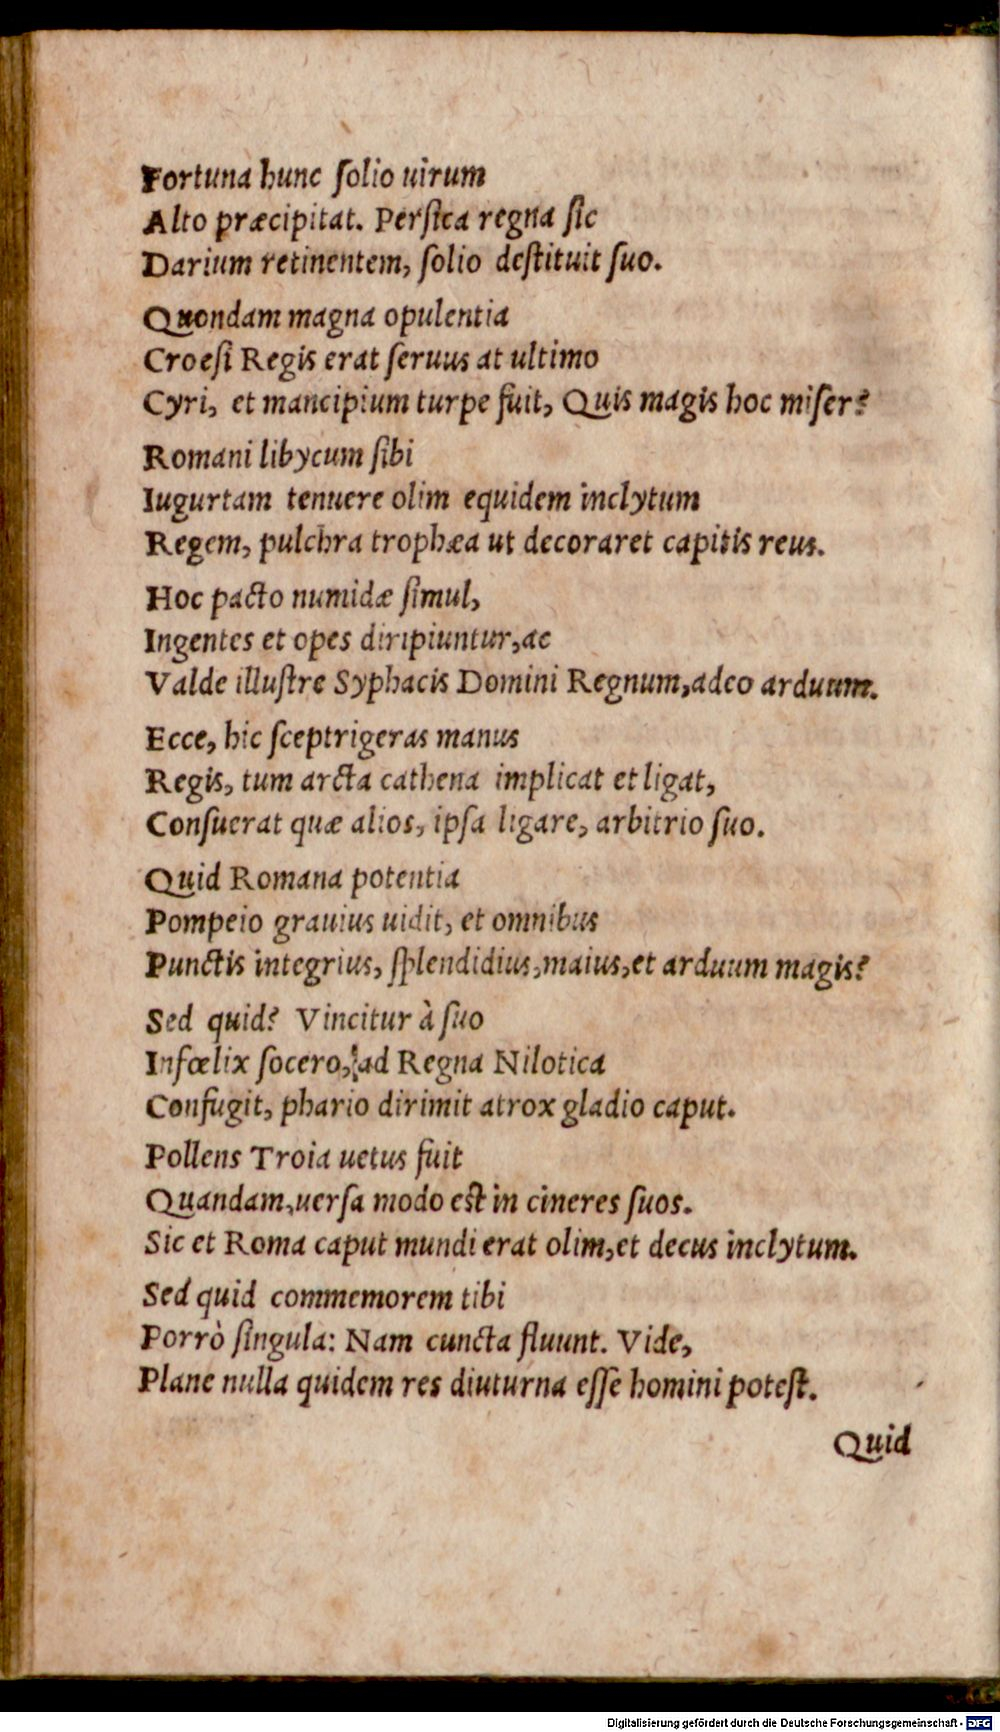 Fortuna hunc ſolio uirum
Alto præcipitat. Perſica regna ſic
Darium retinentem, ſolio deſtituit ſuo.
Quondam magna opulentia
Croeſi Regis erat ſeruus at ultimo
Cyri, et mancipium turpe fuit, Quis magis hoc miſer?
Romani libycum ſibi
Iugurtam tenuere olim equidem inclytum
Regem, pulchra trophæa ut decoraret capitis reus.
Hoc pacto numidæ ſimul,
Ingentes et opes diripiuntur, ac
Valde illuſtre Syphacis Domini Regnum, adeo arduum.
Ecce, hic ſceptrigeras manus
Regis, tum arcta cathena implicat et ligat,
Conſuerat quæ alios, ipſa ligare, arbitrio ſuo.
Quid Romana potentia
Pompeio grauius uidit, et omnibus
Punctis integrius, ſplendidius, maius, et arduum magis?
Sed quid? Vincitur à ſuo
Infœlix ſocero, ad Regna Nilotica
Confugit, phario dirimit atrox gladio caput.
Pollens Troia uetus fuit
Quandam, uerſa modo eſt in cineres ſuos.
Sic et Roma caput mundi erat olim, et decus inclytum.
Sed quid commemorem tibi
Porrò ſingula: Nam cuncta fluunt. Vide,
Plane nulla quidem res diuturna eſſe homini poteſt.
Quid
Digitalisierung gefördert durch die Deutsche Forschungsgemeinschaft - DFG